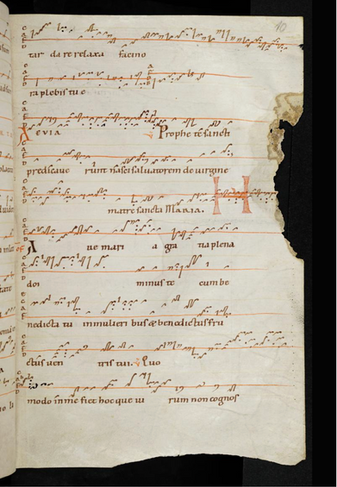 10
tar da re relaxa facino
ra plebis tu e
AEVIA Prophe te sancti
predicave runt nasci salvatorem de virgine
matre sancta MARIA. H
A ue mari a gra na plena
do minus te cum be
nedicta tu in mulieri bus & benedictus fru
ctus uen tris tui. Quo
modo in me fiet hoc que ui rum non cognos